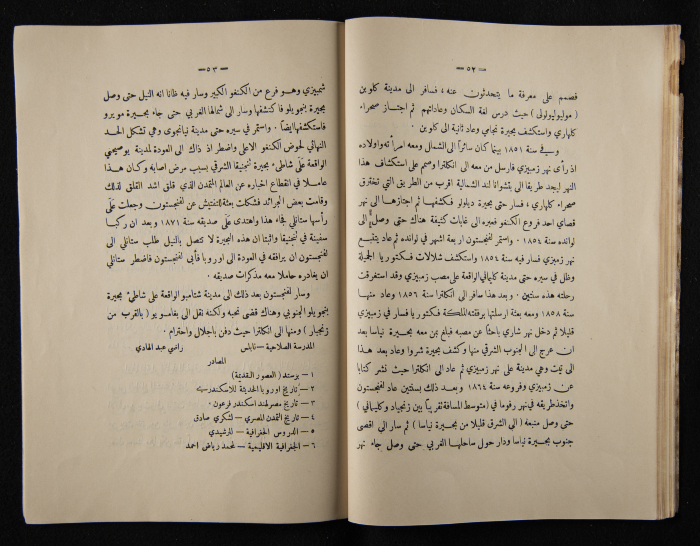 — ٥٢ —
فصمم على معرفة ما يتحدثون عنه، فسافر الى مدينة كلوبن
( موليوليولولى ) حيث درس لغة السكان وعاداتهم ثم اجتاز صحراء
كلهاري واستكشف بحيرة نجامي وعاد ثانية الى كلوبن .
وفي سنة ١٨٥١ بينما كان سائراً الى الشمالي ومعه امرأته واولاده
اذ رأى نهر زمبيزي فارسل من معه الى انكلترا وصمم على استكشاف هذا
النهر ليجد طريقا الى بتشوانا لند الشمالية اقرب من الطريق التي تخترق
صحراء كلهاري ، فسار حتى بحيرة ديلولو فكشفها ثم اجتازها الى نهر
قصاي احد فروع الكنغو فعبره الى غابات كثيفة هناك حتى وصل الى
لوانده سنة ١٨٥٤ . واستمر لفنجستون اربعة اشهر في لوانده ثم عاد يتتبع
نهر زمبيزي فسار فيه سنة ١٨٥٤ واستكشف شلالات فكتوريا الجميلة
وظل في سيره حتى مدينة كليماني الواقعة على مصب زمبيزي وقد استغرقت
رحلته هذه سنتين . وبعد هذا سافر الى انكلترا سنة ١٨٥٦ وعاد منها
سنة ١٨٥٨ ومعه بعثة ارسلتها برفقته الملكة فكتوريا فسار في زمبيزي
قليلا ثم دخل نهر شاري باحثا عن مصبه فبلغ بمن معه بحيرة نياسا بعد
ان عرج الى الجنوب الشرقي منها وكشف بحيرة شروا وعاد بعد هذا
الى تيت وهي مدينة على نهر زمبيزي ثم عاد الى انكلترا حيث نشر كتابا
عن زمبيزي وفروعه سنة ١٨٦٤ وبعد ذلك بسنتين عاد لفنجستون
واتخذ طريقه في نهر رفوما في ( متوسط المسافة تقريبا بين زنجبار وكليماني )
حتى وصل منبعه ( الى الشرق قليلا من بحيرة نياسا ) ثم سار الى اقصى
جنوب بحيرة نياسا ودار حول ساحلها الغربي حتى وصل جاء نهر
— ٥٣ —
شمبيزي وهو فرع من الكنغو الكبير وسار فيه ظانا انه النيل حتى وصل
بحيرة بنجويلو فاكتشفها وسار الى شمالها الغربي حتى جاء بحيرة مويرو
فاستكشفها ايضاً . واستمر في سيره حتى مدينة نيانجوى وهي تشكل الحد
النهائي لحوض الكنغو الاعلى واضطر اذ ذاك الى العودة لمدينة يوصيحي
الواقعة على شاطىء بحيرة تنجنيقا الشرقي بسبب مرض اصابه وكان هذا
عاملا في انقطاع اخباره عن العالم المتمدن الذي قلق اشد القلق لذلك
وقامت بعض الجرائد فشكلت بعثة للتفتيش عن لفنجستون وجعلت على
رأسها ستانلي فجاء هذا واهتدى على صديقه سنة ١٨٧١ وبعد ان ركبا
سفينة في تنجنيقا واثبتا ان هذه البحيرة لا تتصل بالنيل طلب ستانلي الى
لفنجستون ان يرافقه في العودة الى اوروبا فأبى لفنجستون فاضطر ستانلي
ان يغادره حاملا معه مذكرات صديقه .
وسار لفنجستون بعد ذلك الى مدينة شتامبو الواقعة على شاطىء بحيرة
بنجويلو الجنوبي وهناك قضى نحبه ولكنه نقل الى بغامويو ( بالقرب من
زنجبار ) ومنها الى انكلترا حيث دفن باجلال واحترام .
المدرسة الصلاحية – نابلس راضي عبد الهادي
المصادر
١ – برستد ( العصور القديمة )
٢ – تاريخ اوروبا الحديثة للاسكندري
٣ – تاريخ مصر لهند اسكندر فرعون .
٤ – تاريخ التمدن المصري – لشكري صادق
٥ – الدروس الجغرافية – للرشيدي
٦ – الجغرافية الاقليمية – محمد رياض احمد